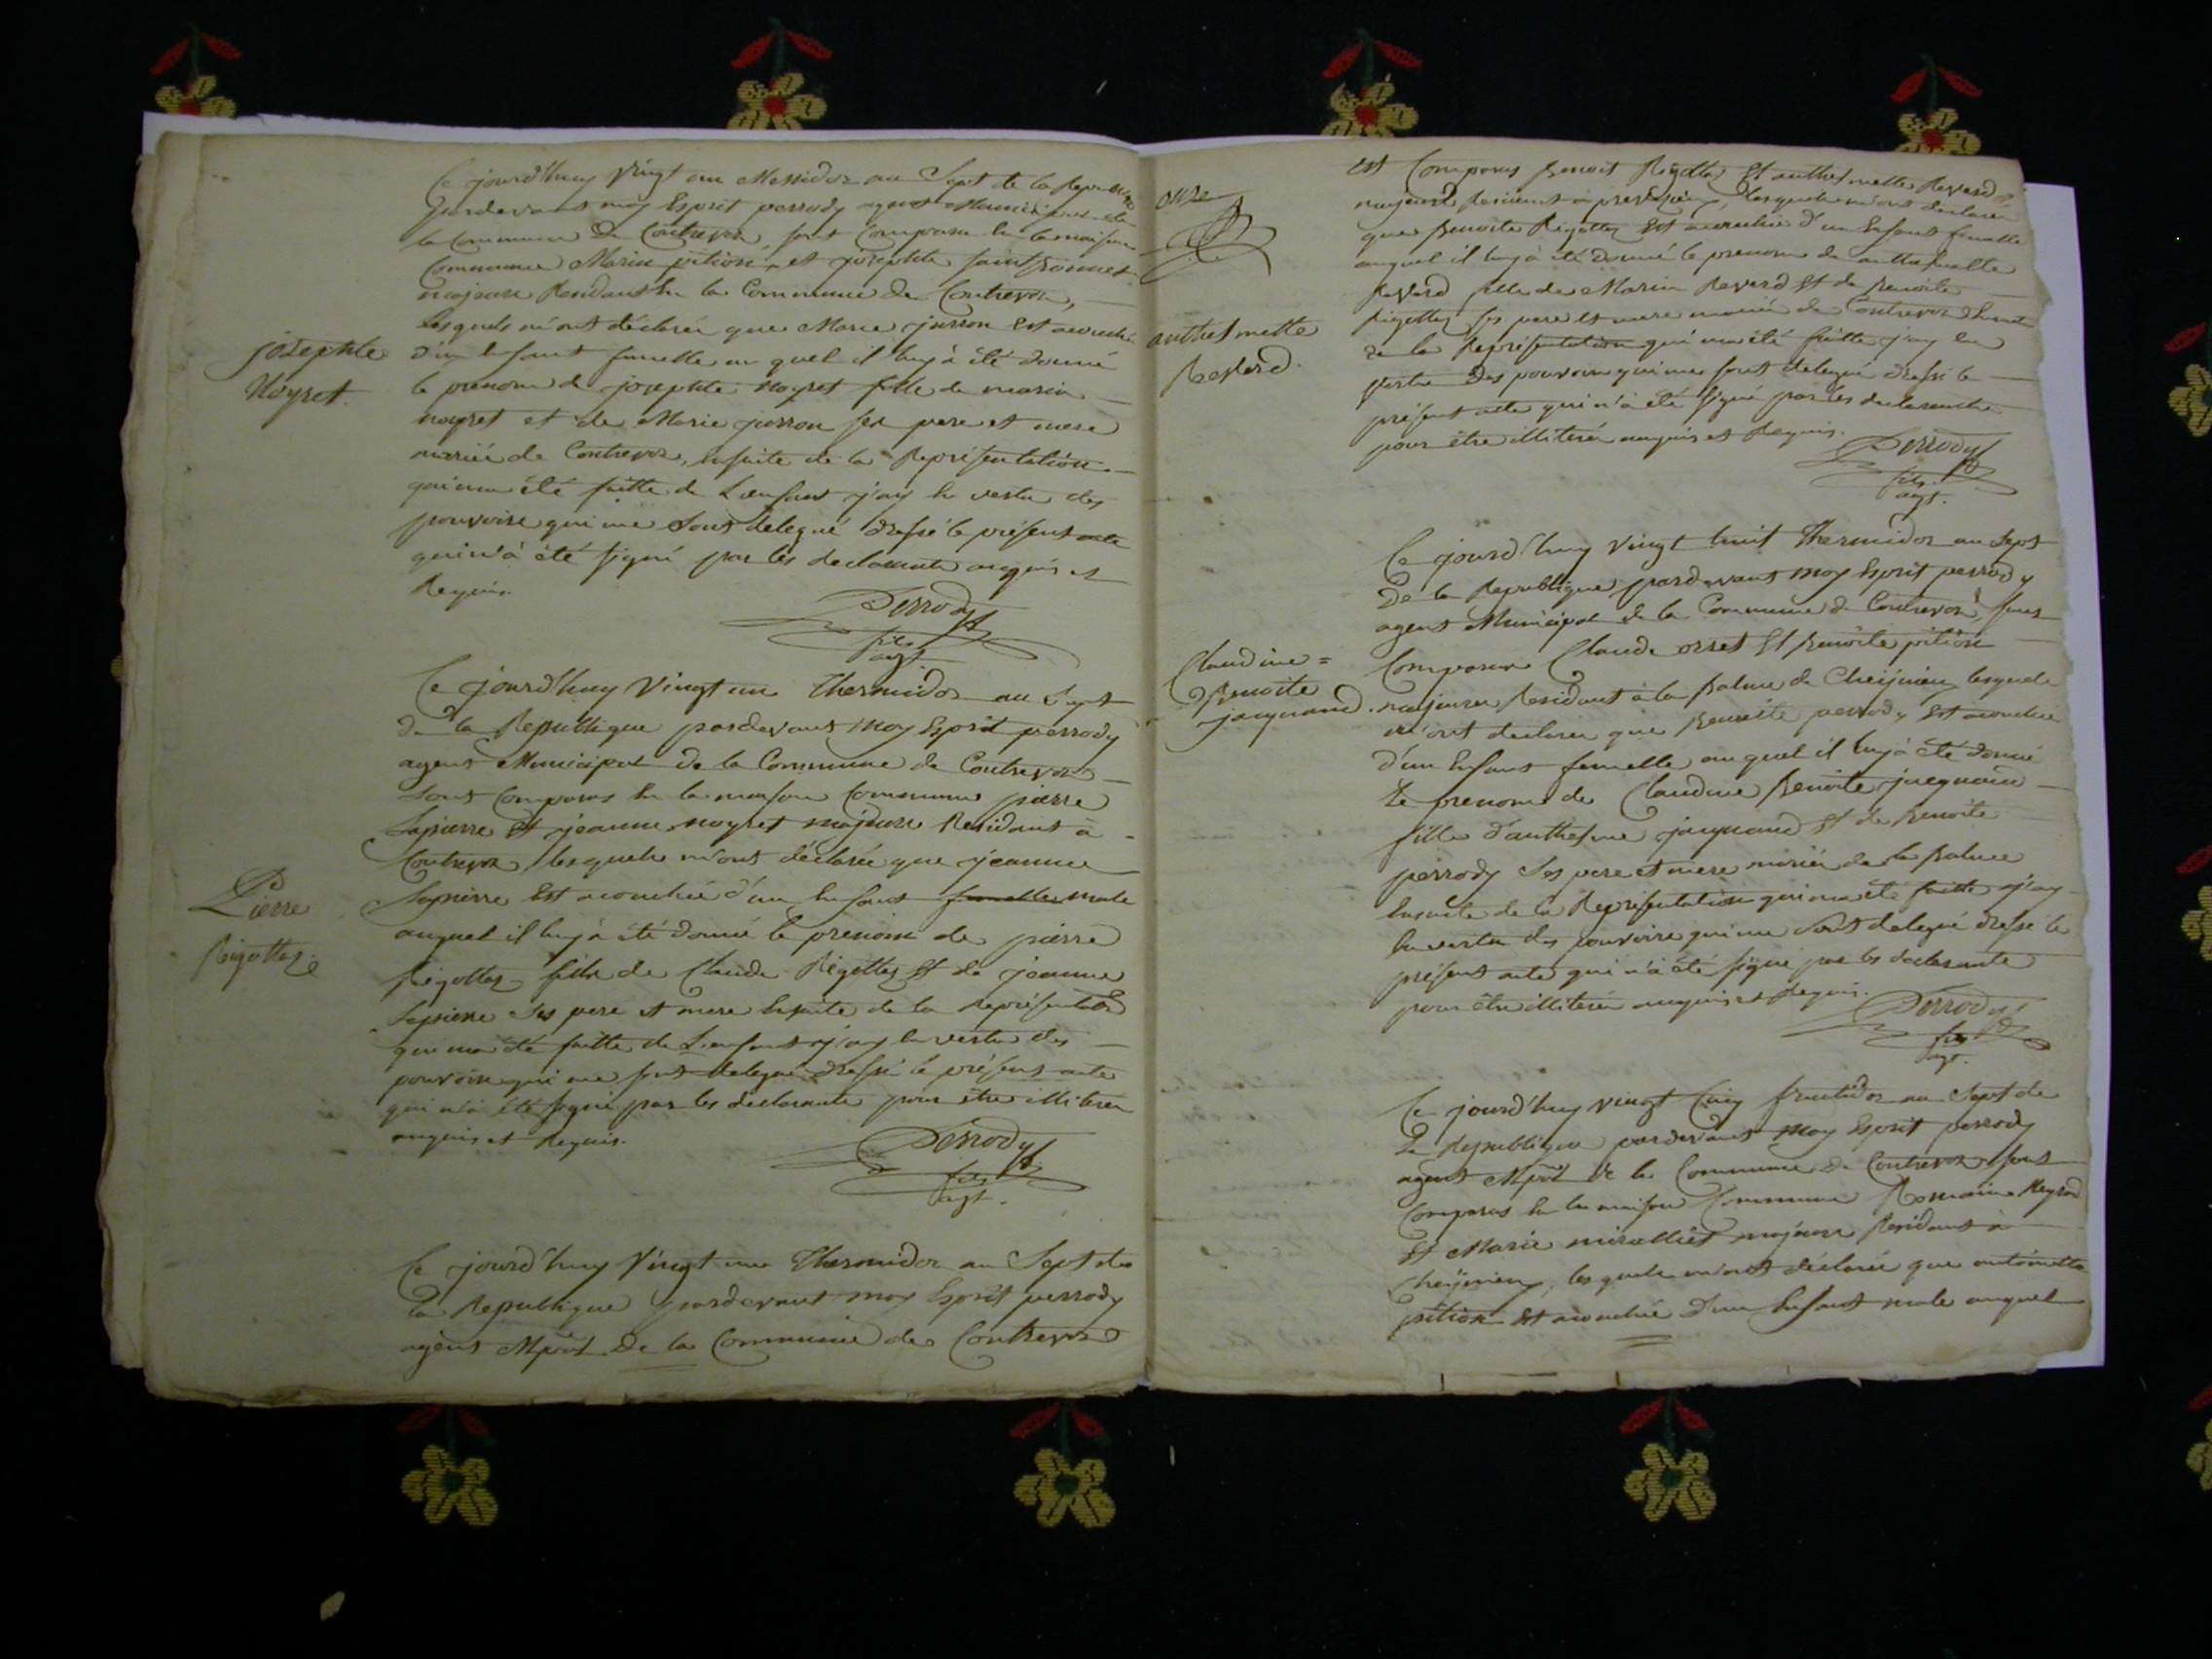 Ce jourd'huy vingt un Messidor an Sept de la Republique
pardevant moy Esprit perrody agent Municipal de
la Commune de Contrevoz, sont Comparu En la maison
Commune Marin pition, et josephte saint
majeurs Residants En la Commune de Contrevoz,
lesquels m'ont déclarée que Marie jurron Est acouchée
josephte
Noyret.
d'un Enfant femelle au quel il luy à été donné
le prenom de josephte noyret fille de marin
noyret et de Marie jurron ses pere et mere
mariée de Contrevoz, Ensuite de la Représentation
qui ma été faitte de L'enfant j'ay En vertu des
pouvoirs qui me sont delegué dressé le présent acte
qui n'à été signé par les declarants enquis et
Requis.
Perrody
fils
agt
Ce jourd'huy Vingt un Thermidor an Sept
de la Republique pardevant moy Esprit perrody
agent Municipal de la Commune de Contrevoz
sont Comparus En la maison Commune pierre
Lapierre Et jeanne noyret majeurs Residants à
Contrevoz, lesquels m'ont déclarée que jeanne
Lapierre Est acouchée d'un Enfant femelle male
Pierre
Rigottaz
auquel il luy à été donné le prenom de pierre
Rigottaz fils de Claude Rigottaz Et de jeanne
Lapierre Ses pere et mere Ensuite de la Représentation
qui ma été faitte de L'enfant j'ay En vertu des
pouvoirs qui me sont delegué dressé le présent acte
qui n'à été signé par les declarants pour être illiterée
enquis et Requis.
Perrody
fils
agt.
Ce jourd'huy Vingt un Thermidor an Sept de
la Republique pardevant moy Esprit perrody
agent Mpal De la Commune de Contrevoz
onze
Est Comparus Benoit Rigottaz Et anthelmette Reverd
majeurs Residents à premeyzieu, lesquels m'ont declarée
que Benoite Rigottaz Est acouchée d'un Enfant femelle
auquel il luy à été Donné le prenom de anthelmette
Reverd fille de Marin Reverd Et de Benoite
Rigottaz ses pere et mere mariée de Contrevoz Ensuite
anthelmette
Reverd.
de la Représentation qui ma été faitte j'ay En
vertu Des pouvoirs qui me sont delegué dressé le
présent acte qui n'à été signé par les declarants
pour être illiterée enquis et Requis.
Perrody
fils
agt.
Ce jourd'huy Vingt huit Thermidor an Sept
De la Republique, pardevant moy Esprit perrody
agent Municipal de la Commune de Contrevoz, sont
Claudine =
Benoite
jacquand.
Comparu Claude orset Et Benoite pition
majeurs Residant à la Balme de Cheignieu lesquels
m'ont declarée que Benoite perrody Est acouchée
d'un Enfant femelle auquel il luy à été Donné
Le prenom de Claudine Benoite jacquand
fille d'anthelme jacquand Et de Benoite
perrody Ses pere et mere mariée de la Balme
Ensuite de la Représentation qui ma été faitte j'ay
En vertu des pouvoirs qui me Sont delegué dressé le
présent acte qui n'à été signé par les declarants
pour être illiterée enquis et Requis.
Perrody
fils
agt.
Ce jourd'huy vingt Cinq fructidor an Sept de
La Republique pardevant moy Esprit perrody
agent Mpal De la Commune de Contrevoz Sont
Comparus En la maison Commune Romain
Et Marie majeurs Residants à
Cheignieu, lesquels m'ont déclarée que antoinette
pition Est acouchée D'un Enfant male auquel